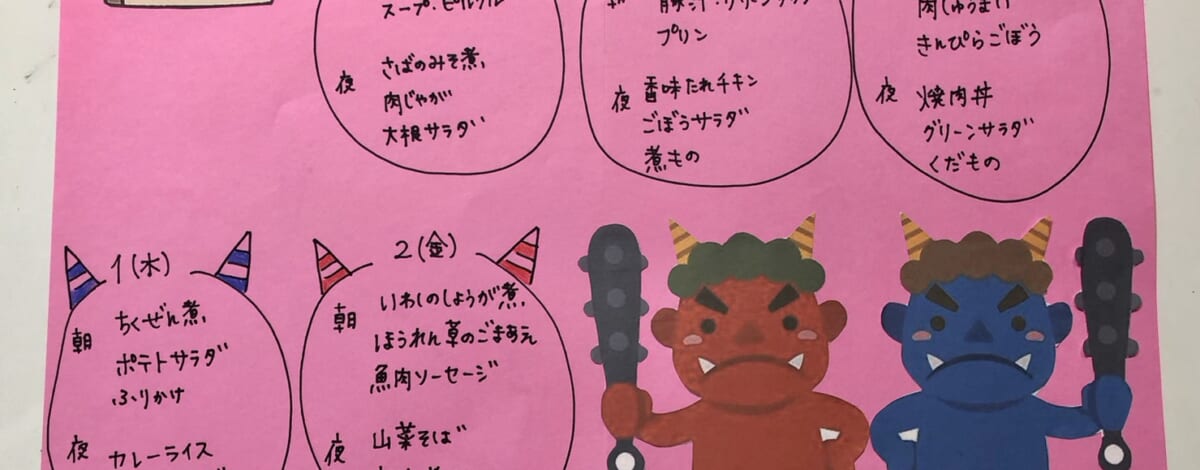 スープ・ピルクル
夜
さばのみそ煮
肉じゃが
大根サラダ
豚汁・グリーンサラダ
プリン
夜
香味たれチキン
ごぼうサラダ
煮もの
肉しゅうまい
きんぴらごぼう
夜
焼肉丼
グリーンサラダ
くだもの
1(木)
朝
ちくぜん煮
ポテトサラダ
ふりかけ
夜
カレーライス
2(金)
朝
いわしのしょうが煮
ほうれん草のごまあえ
魚肉ソーセージ
夜
山菜そば